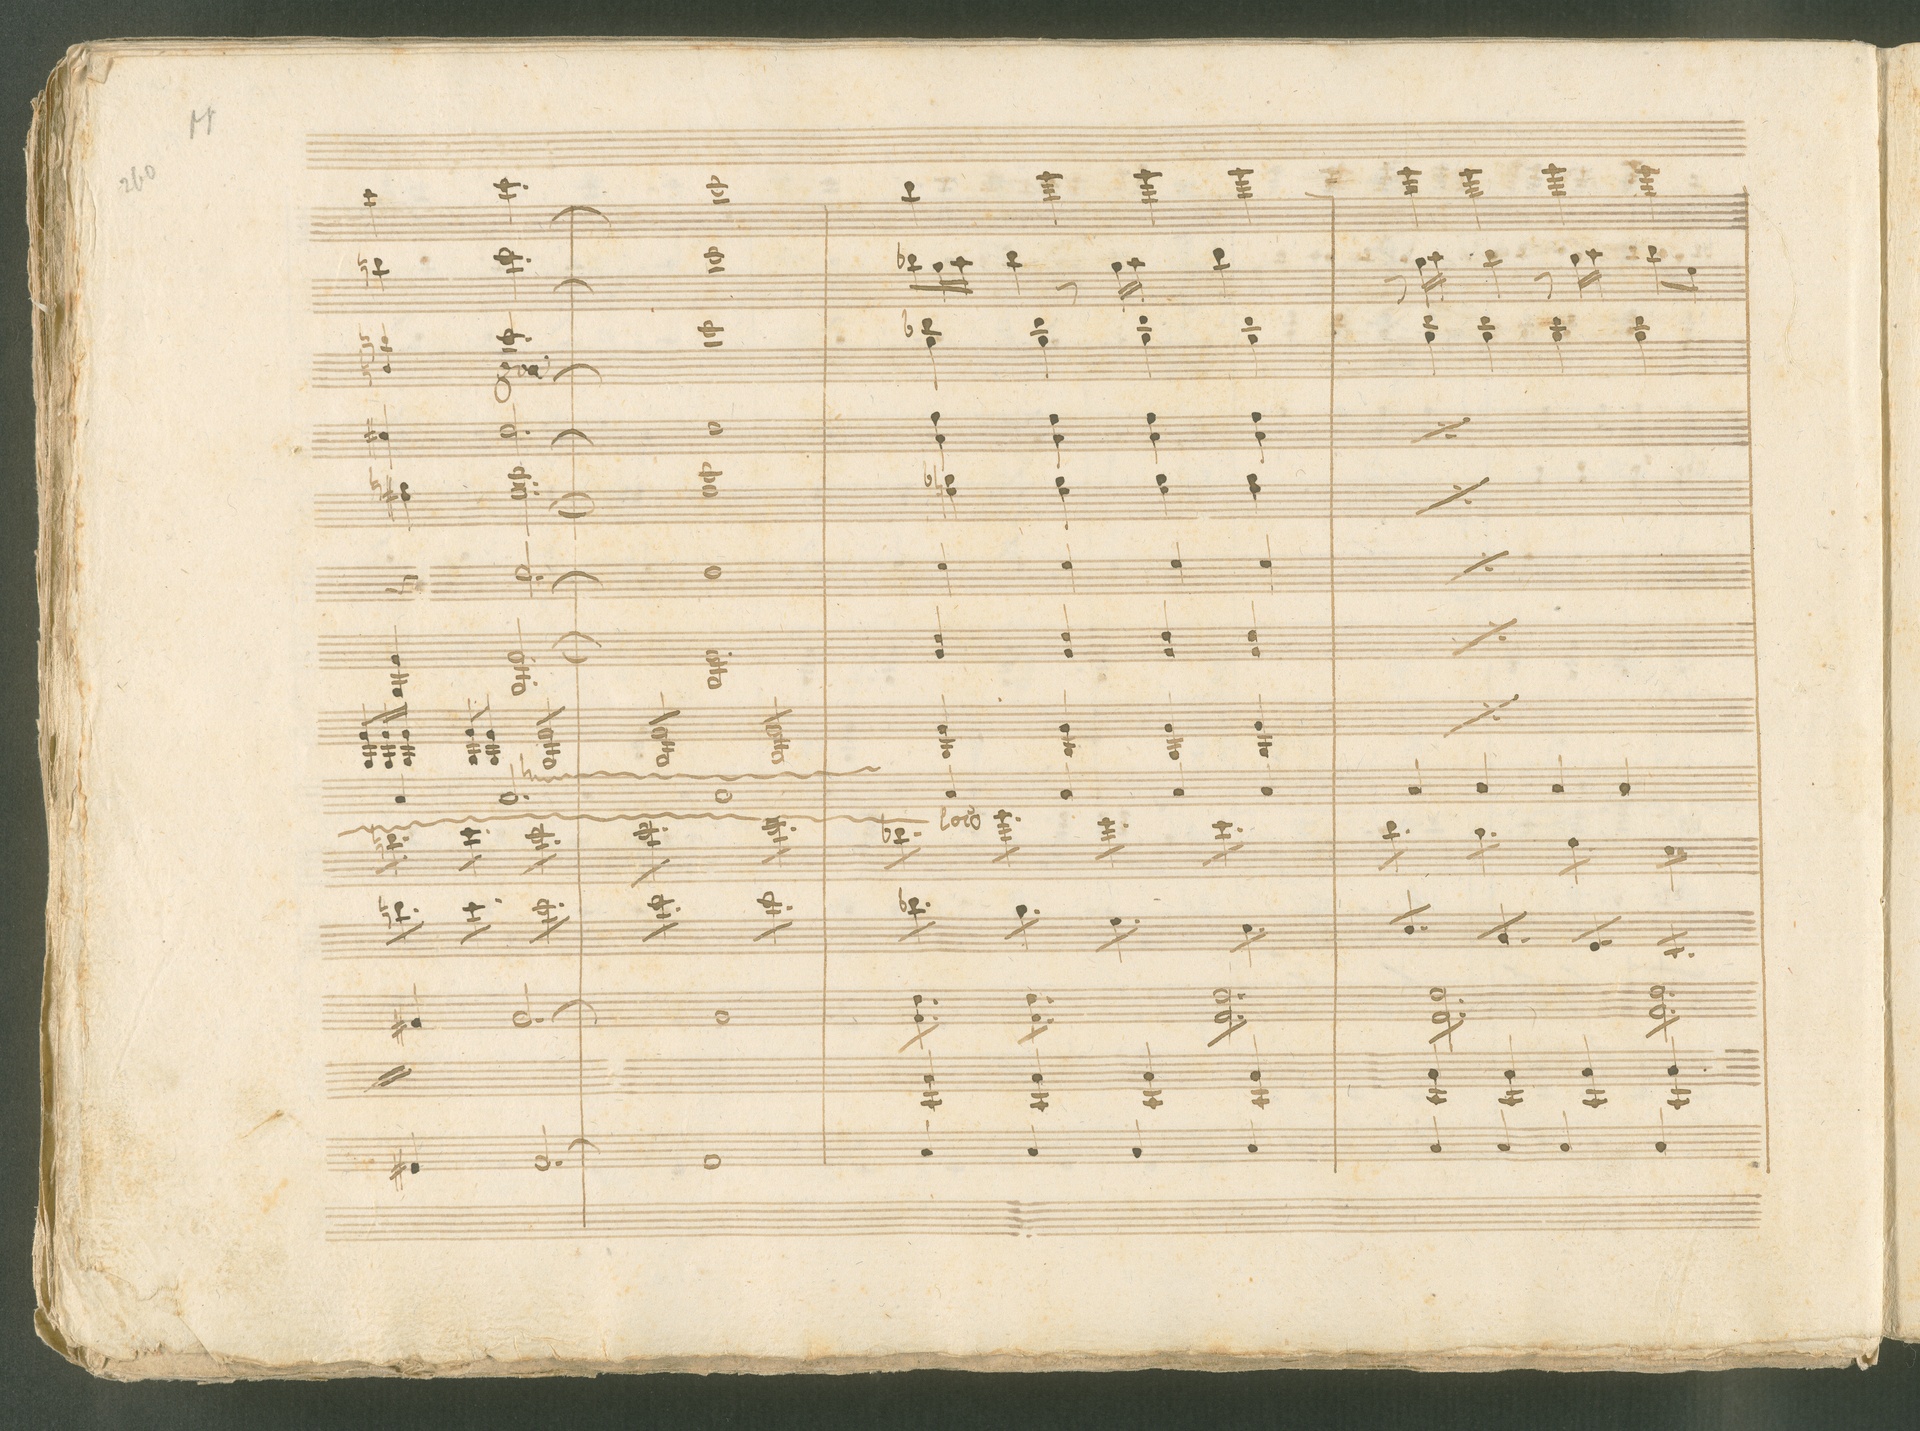 260
8va
loco